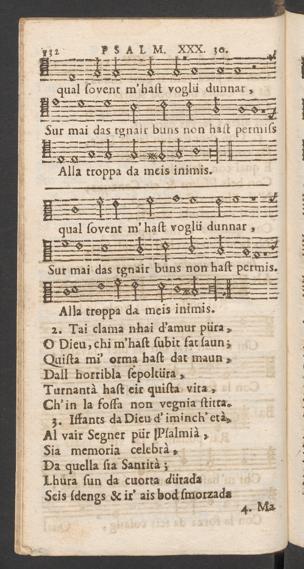 132 PSALM. XXX. 30.
qual ſovent m'haſt voglü dunnar,
Sur mai das tgnair buns non haſt permiſs
Alla troppa da meis inimis.
qual ſovent m'haſt voglü dunnar,
Sur mai das tgnair buns non haſt permis.
Alla troppa da meis inimis.
2. Tai clama nhai d'amur püra,
O Dieu, chi m'haſt ſubit ſat ſaun;
Quiſta mi' orma haſt dat maun,
Dall horribla ſepoltüra,
Turnantà haſt eir quiſta vita,
Ch'in la foſſa non vegnia ſtitta.
3. Iſſants da Dieu d'iminch'età,
Al vair Segner pür Pſalmià,
Sia memoria celebrà,
Da quella ſia Santità;
Lhura ſun da cuorta dürada
Seis ſdengs & ir' ais bod ſmorzada
4. Ma